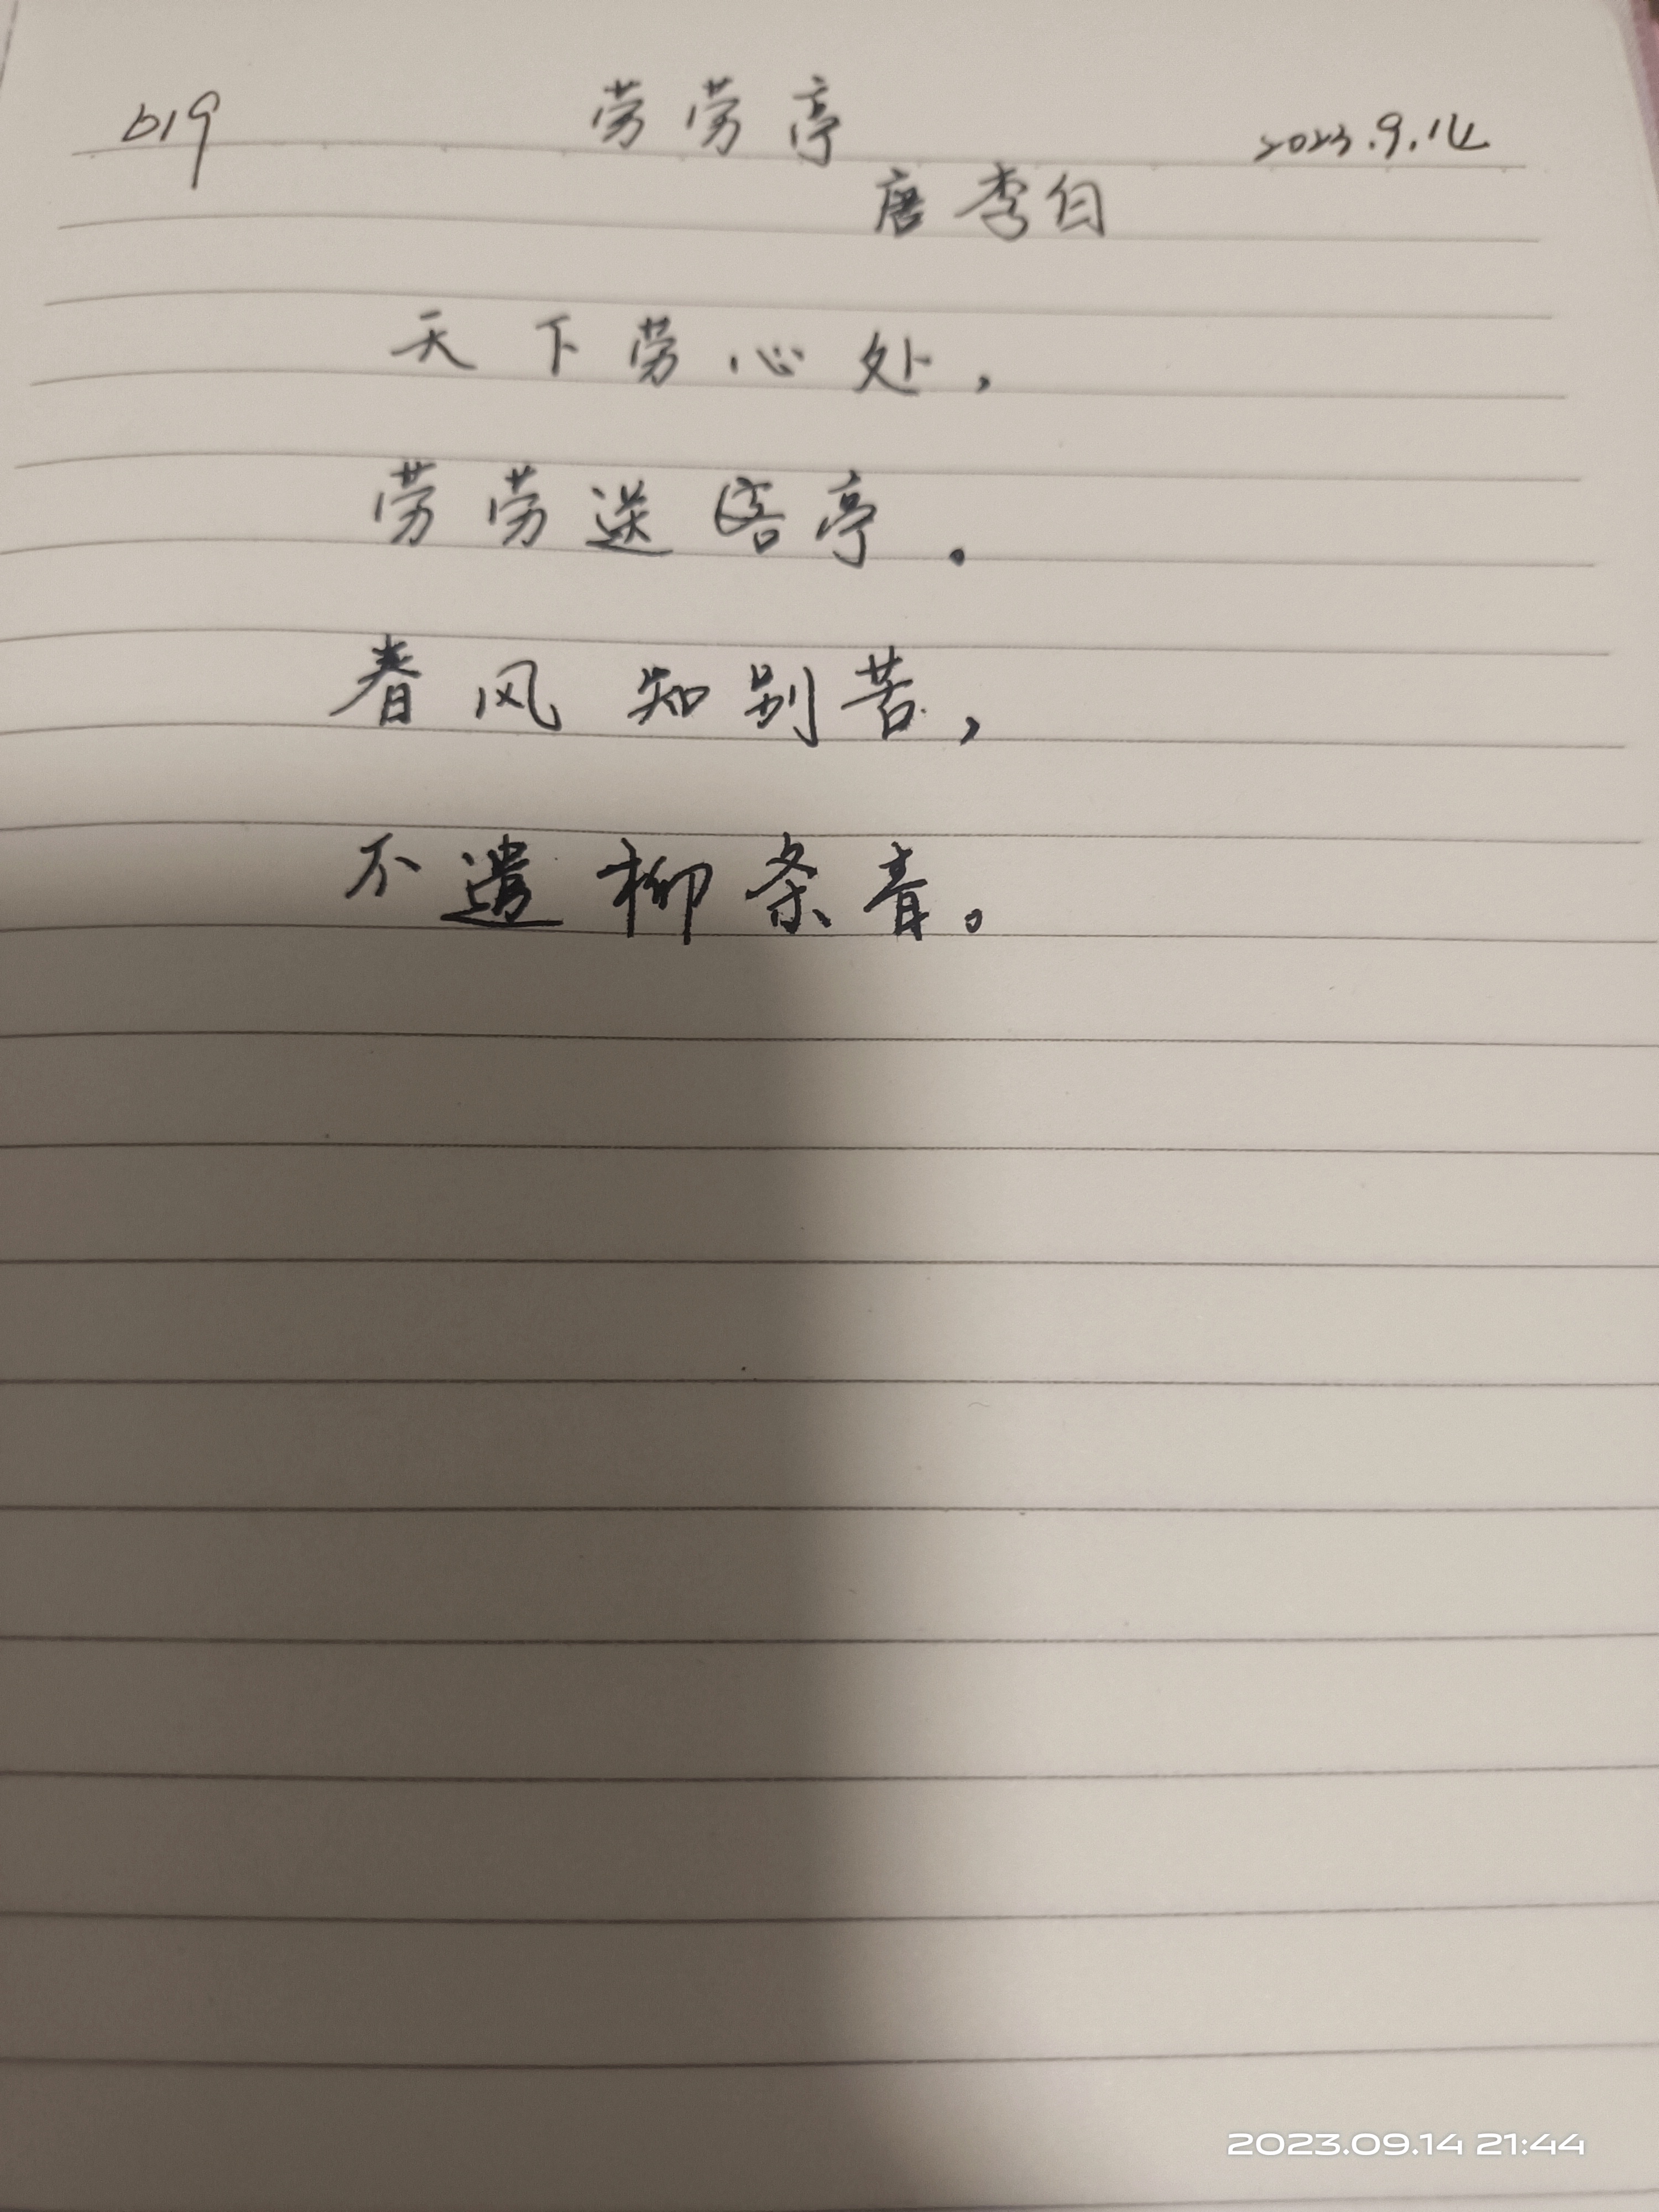 619 劳劳亭 2023.9.14
唐 李白
天下劳心处,
劳劳送客亭。
春风知别苦,
不遣柳条青。
2023.09.14 21:44